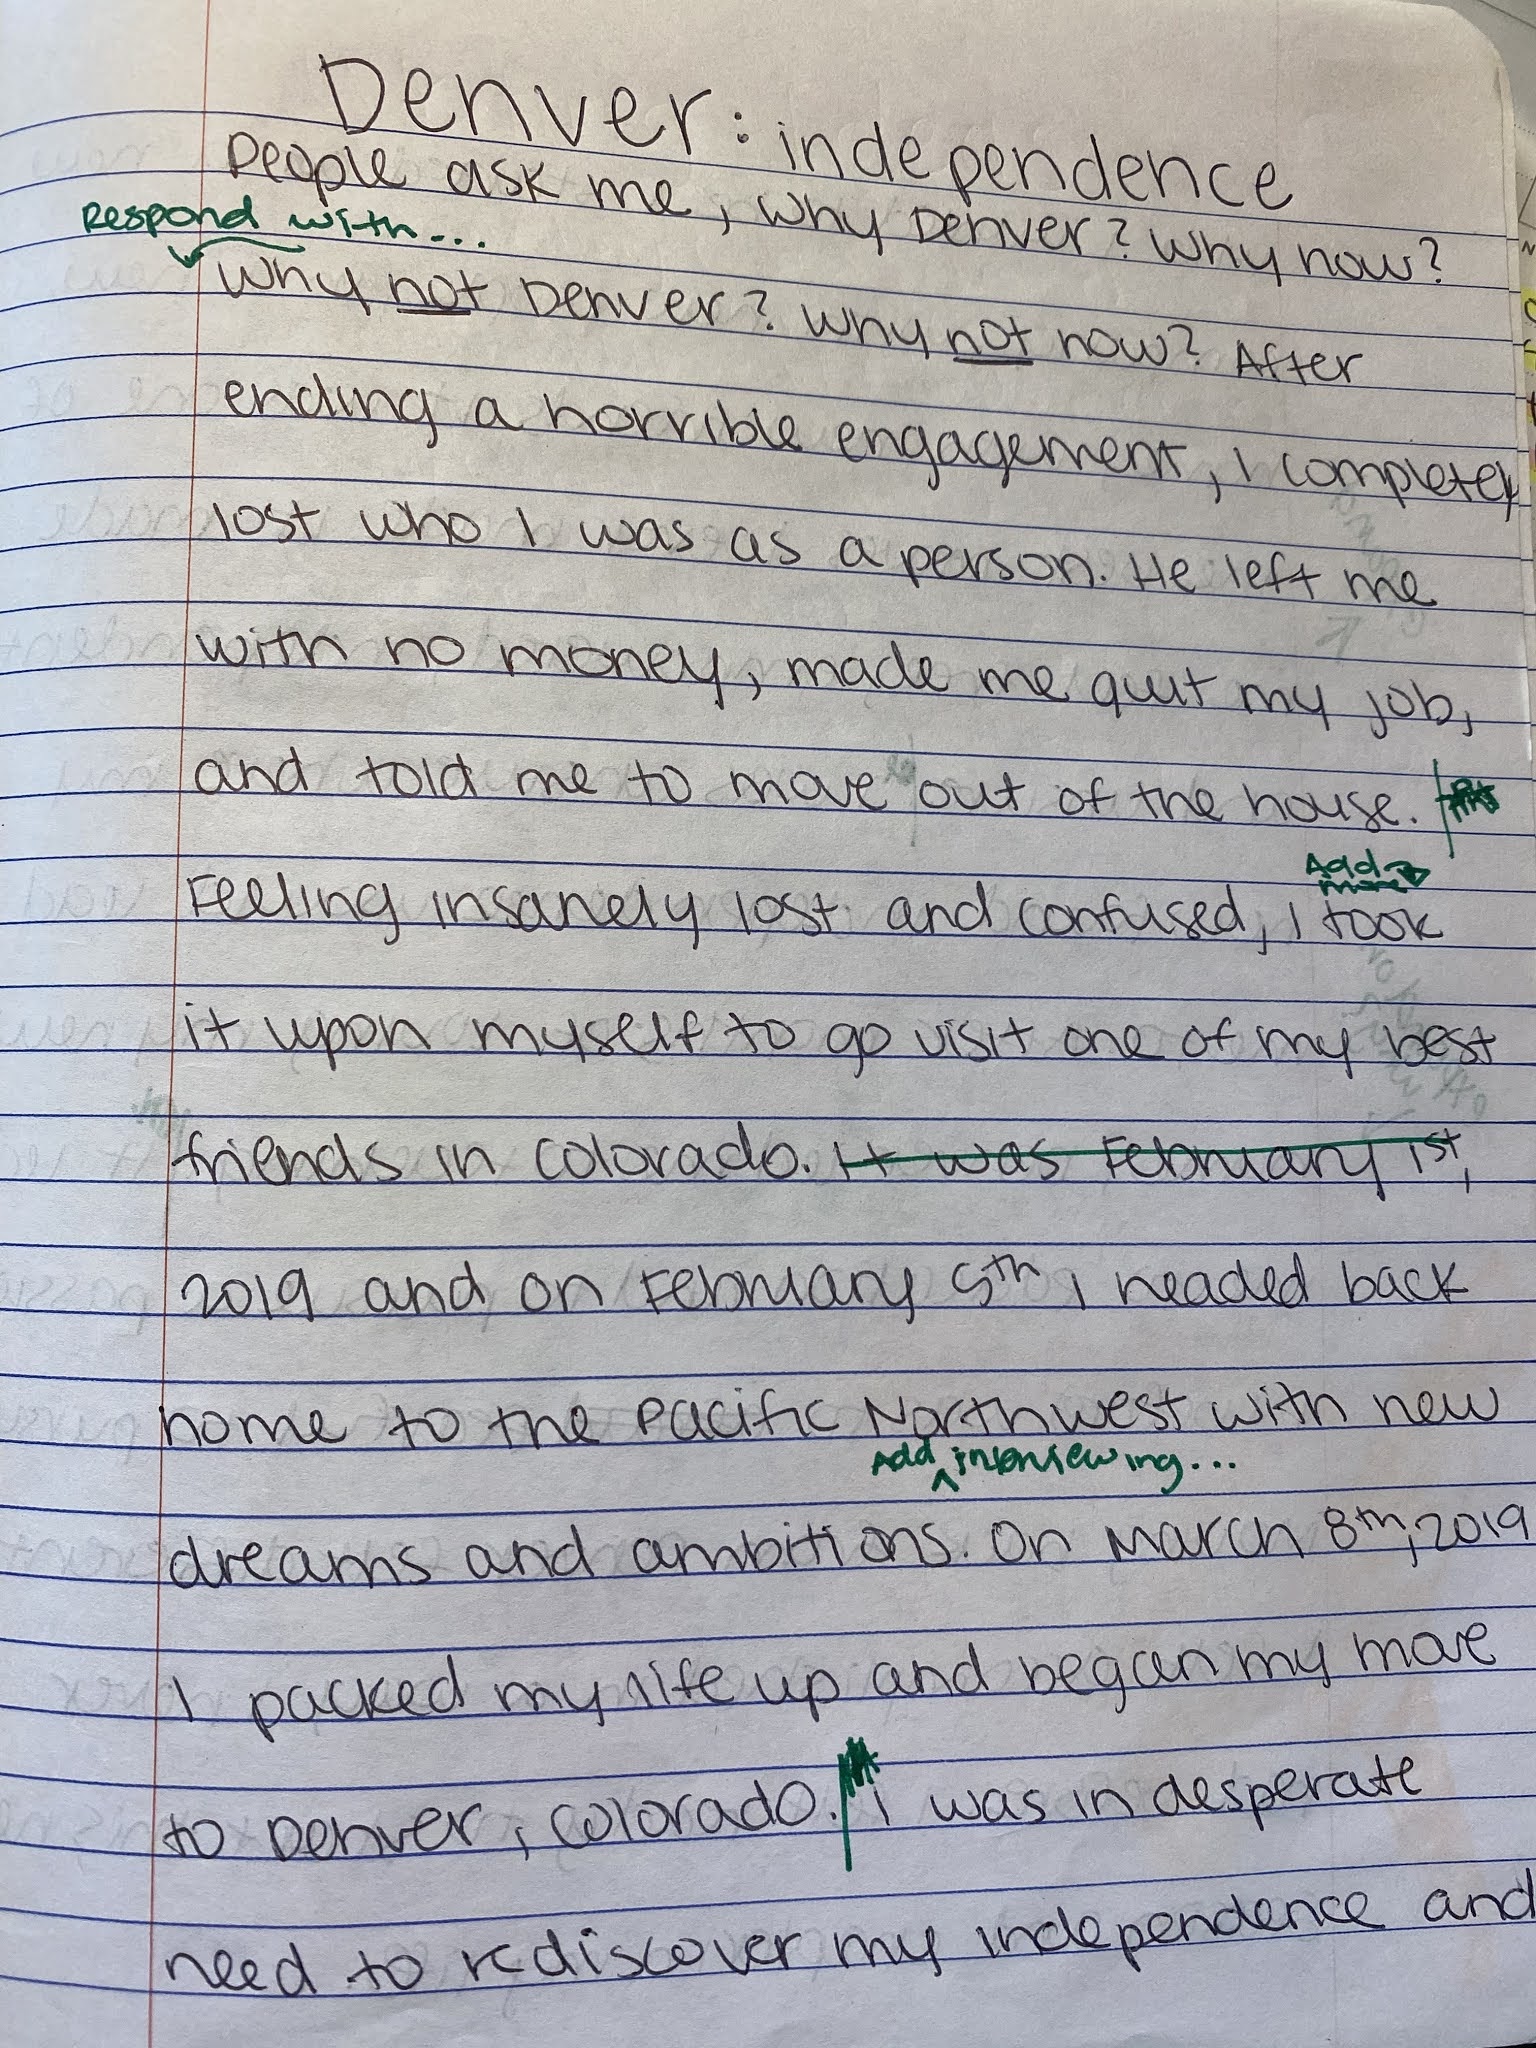 Denver: independence
People ask me, why Denver? Why now?
Respond with...
Why not Denver? Why not now? After
ending a horrible engagement, I completely
lost who I was as a person. He left me
with no money, made me quit my job,
and told me to move out of the house.
Add more
Feeling insanely lost and confused, I took
it upon myself to go visit one of my best
friends in Colorado. It was February 1st,
2019 and on February 5th I headed back
home to the Pacific Northwest with new
Add interviewing...
dreams and ambitions. On March 8th, 2019
I packed my life up and began my move
to Denver, Colorado. I was in desperate
need to rediscover my independence and